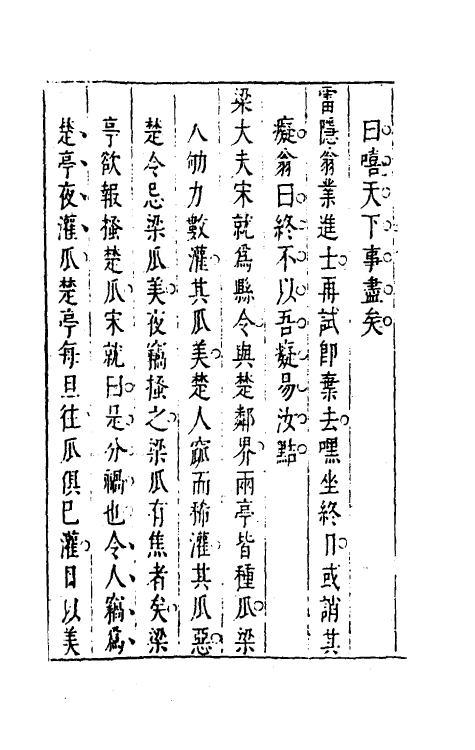 曰嘻天下事盡矣
雷隱翁業進士再試即棄去嘿坐終日或誚其
癡翁曰終不以吾癡易汝黠
梁大夫宋就爲縣令與楚鄰界兩亭皆種瓜梁
人劬力數灌其瓜美楚人窳而稀灌其瓜惡
楚令忌梁瓜美夜竊搔之梁瓜有焦者矣梁
亭欲報搔楚瓜宋就曰是分禍也令人竊爲
楚亭夜灌瓜楚亭每旦往瓜俱已灌日以美